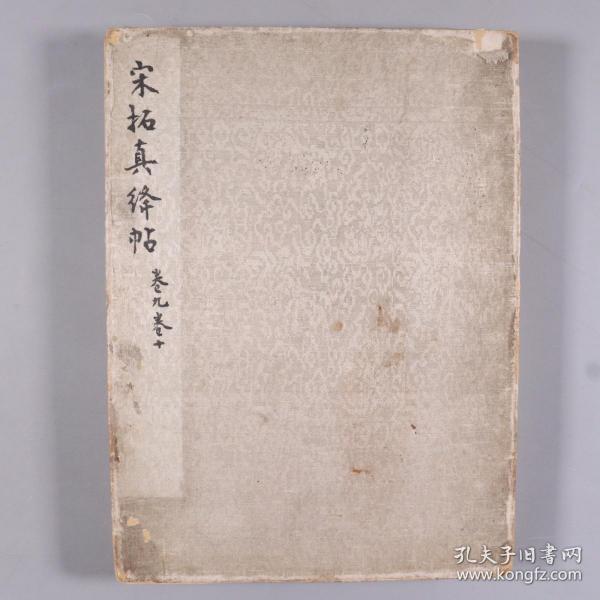 宋拓真绛帖
卷九卷十
孔夫子旧书网
www.kongfz.com